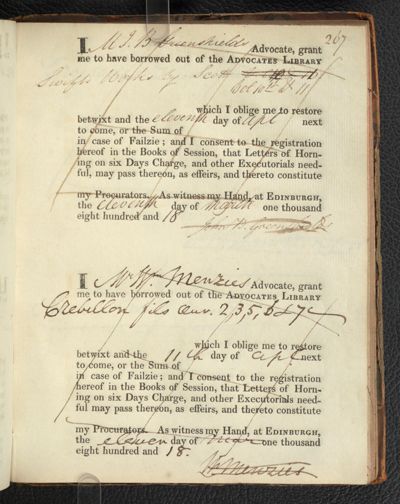 267
I M J B Greenshields Advocate, grant
me to have borrowed out of the ADVOCATES LIBRARY
Swifts Works by Scott
Vol 10th & 11
which I oblige me to restore
betwixt and the eleventh day of Apl next
to come, or the Sum of
in case of Failzie; and I consent to the registration
hereof in the Books of Session, that Letters of Horn-
ing on six Days Charge, and other Executorials need-
ful, may pass thereon, as effeirs, and thereto constitute
my Procurators. As witness my Hand, at EDINBURGH,
the eleventh day of March one thousand
eight hundred and 18
John B. Greenshields
I Mr Wm Menzies Advocate, grant
me to have borrowed out of the ADVOCATES LIBRARY
Crebillon fils Œuv. 2, 3, 5, 6 & 7
which I oblige me to restore
betwixt and the 11th day of Apl next
to come, or the Sum of
in case of Failzie; and I consent to the registration
hereof in the Books of Session, that Letters of Horn-
ing on six Days Charge, and other Executorials need-
ful may pass thereon, as effeirs, and thereto constitute
my Procurators. As witness my Hand, at EDINBURGH,
the eleven day of Mar one thousand
eight hundred and 18.
Wm Menzies